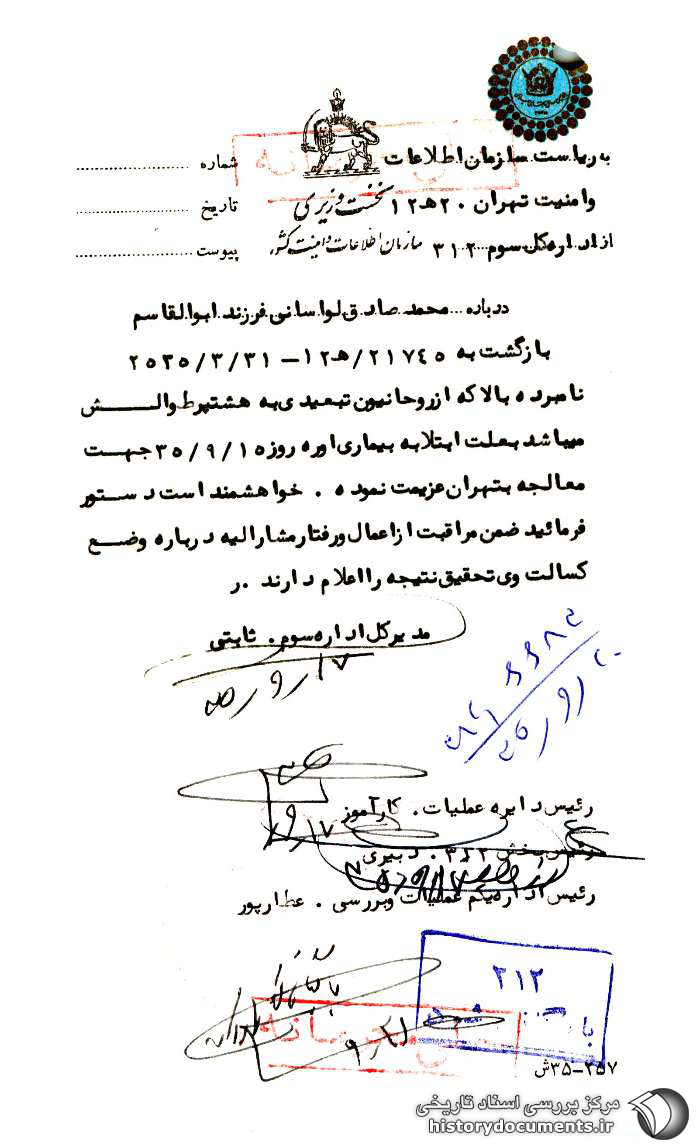 به ریاست سازمان اطلاعات
وامنیت تهران ۲۰هـ۱۲
از اداره کل سوم ۳۱۲
نخست وزیری
سازمان اطلاعات و امنیت کشور
شماره
تاریخ
پیوست
درباره محمد صادق لواسانی فرزند ابوالقاسم
بازگشت به ۲۱۷۴۵/هـ۱۲ – ۲۵۳۵/۳/۳۱
نامبرده بالا که از روحانیون تبعیدی به هشتپرطوالش
میباشد بعلت ابتلا به بیماری اوره روز ۳۵/۹/۱۵ جهت
معالجه بتهران عزیمت نموده . خواهشمند است دستور
فرمائید ضمن مراقبت از اعمال ورفتار مشارالیه درباره وضع
کسالت وی تحقیق نتیجه را اعلام دارند .ر
مدیرکل اداره سوم . ثابتی
رئیس دایره عملیات . کارآموز
رئیس بخش ۳۱۲ . دبیری
رئیس اداره یکم عملیات وبررسی . عطارپور
۳۱۲
۳۵-۲۵۷ش
مرکز بررسی اسناد تاریخی
historydocuments.ir